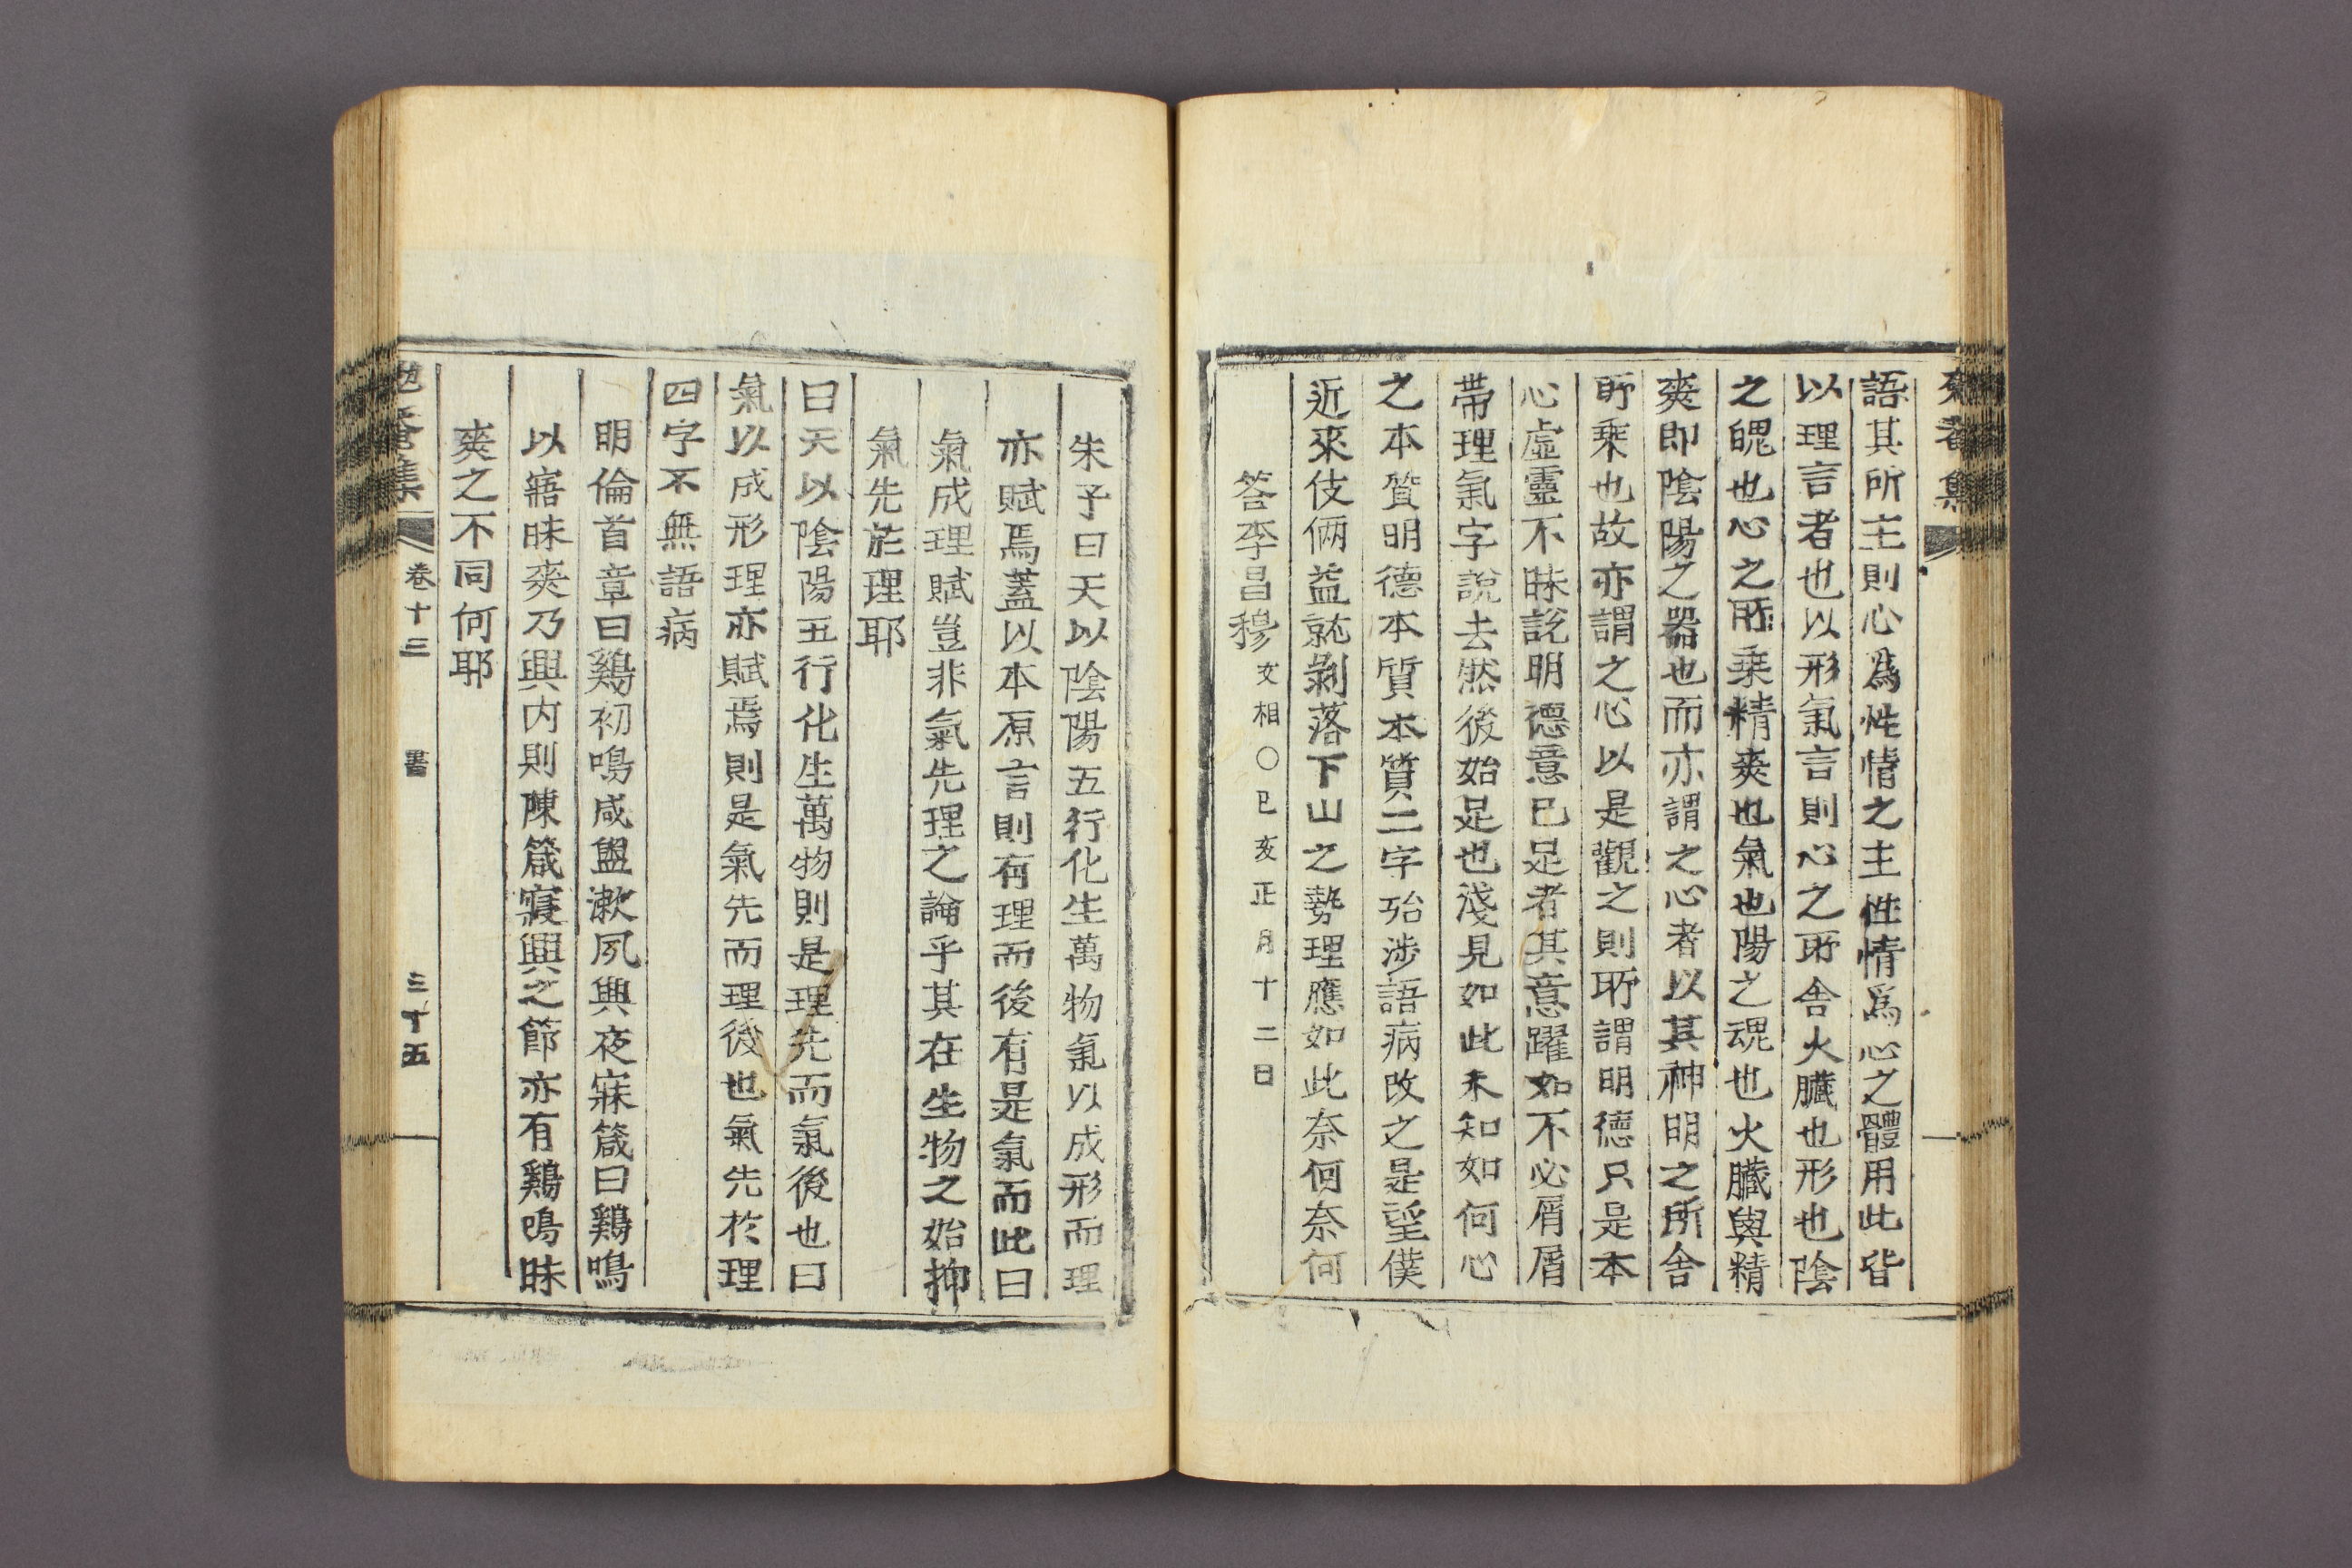 語其所主則心爲性情之主性情爲心之體用此皆
以理言者也以形氣言則心之所舍火臟也形也陰
之魄也心之所乘精爽也氣也陽之魂也火臟與精
爽即陰陽之器也而亦謂之心者以其神明之所舍
所乘也故亦謂之心以是觀之則所謂明德只是本
心虛靈不昧說明德意已足者其意躍如不必屑屑
帶理氣字說去然後始足也淺見如此未知如何心
之本質明德本質本質二字殆涉語病改之是望僕
近來伎倆益就剝落下山之勢理應如此奈何奈何
答李昌穆文相〇己亥正月十二日
朱子曰天以陰陽五行化生萬物氣以成形而理
亦賦焉蓋以本原言則有理而後有是氣而此曰
氣成理賦豈非氣先理之論乎其在生物之始抑
氣先於理耶
曰天以陰陽五行化生萬物則是理先而氣後也曰
氣以成形理亦賦焉則是氣先而理後也氣先於理
四字不無語病
明倫首章曰鷄初鳴咸盥漱夙興夜寐箴曰鷄鳴
以寤昧爽乃興內則陳箴寢興之節亦有鷄鳴昧
爽之不同何耶
卷十三 書 三十五